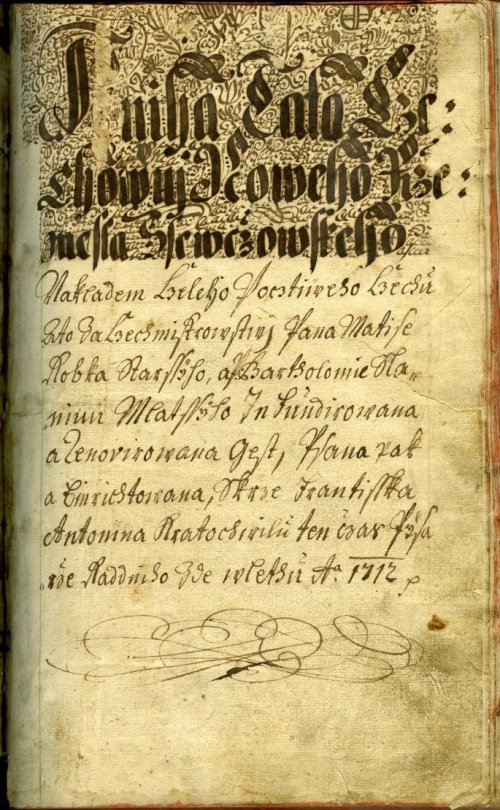 Kniha Tato Cze:
Chowny Noweho Rze:
mesla Ssewczowskeho
Nakladem Czeleho Pocztiweho Czechu
Ato Za Czechmistrowstwj Pana Matise
Robka Starssyho, a P. Bartholomie Sla„
nini Mlatssyho In Fundirowana
a Renovirowana Gest, Psana pak
a Einrichtowana, Skrze Frantisska
Antonina Kratochwilu ten čzas Pysa
„rže Raddniho Zde w lethu Aº 1712